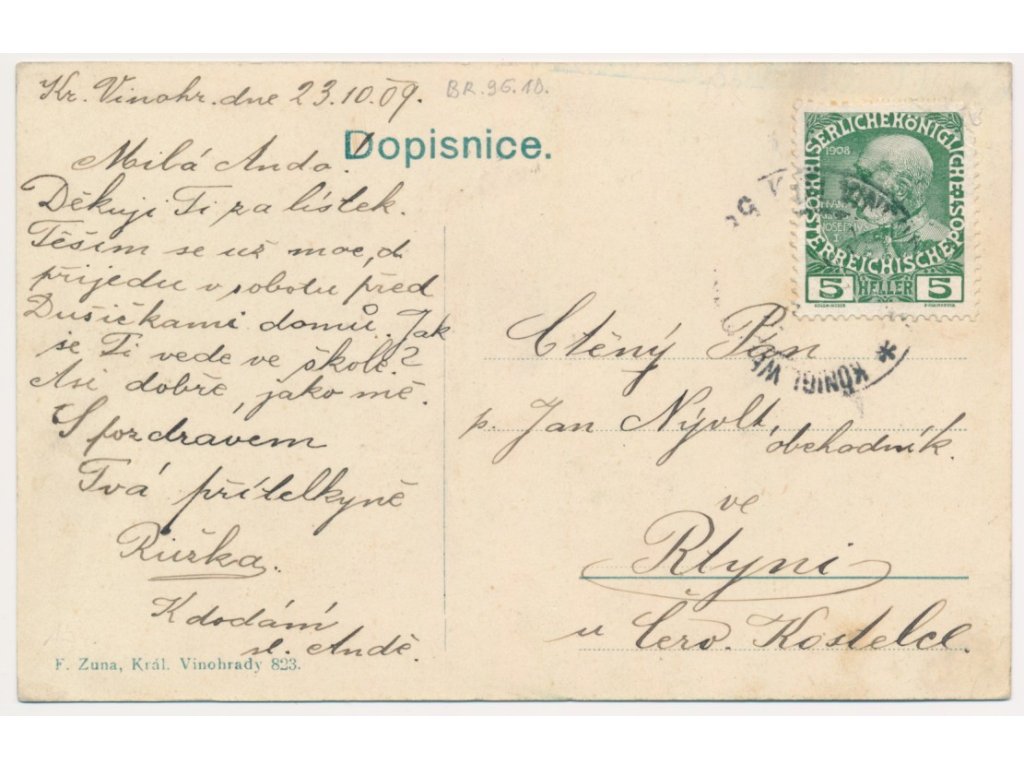 Kr. Vinohr. dne 23.10.09.
BR.96.10.
Dopisnice.
Milá Ando.
Děkuji Ti za lístek.
Těším se už moc, až
přijedu v sobotu před
Dušičkami domů. Jak
se Ti vede ve škole?
Asi dobře, jako mě.
S pozdravem
Tvá přítelkyně
Růžka.
K dodání
sl. Andě.
F. Zuna, Král. Vinohrady 823.
KAISERLICHE KÖNIGLICHE ÖSTERREICHISCHE POST
1908
5 HELLER 5
KÖNIGL WE
Ctěný Pan
p. Jan Nývlt, obchodník.
ve
Rtyni
u Červ. Kostelce.